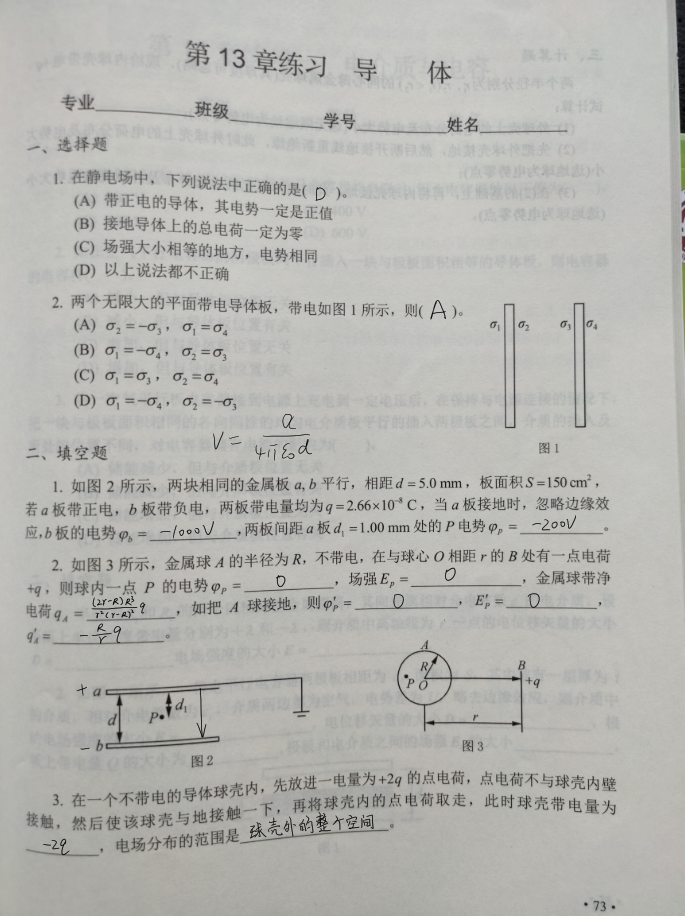 第 13 章练习 导 体
专业 班级 学号 姓名
一、选择题
1. 在静电场中，下列说法中正确的是( D )。
(A) 带正电的导体，其电势一定是正值
(B) 接地导体上的总电荷一定为零
(C) 场强大小相等的地方，电势相同
(D) 以上说法都不正确
2. 两个无限大的平面带电导体板，带电如图 1 所示，则( A )。
(A) σ₂ = −σ₃，σ₁ = σ₄
(B) σ₁ = −σ₄，σ₂ = σ₃
(C) σ₁ = σ₃，σ₂ = σ₄
(D) σ₁ = −σ₄，σ₂ = −σ₃
σ₁ σ₂ σ₃ σ₄
图 1
V = a/4πε₀d
二、填空题
1. 如图 2 所示，两块相同的金属板 a, b 平行，相距 d = 5.0 mm，板面积 S = 150 cm²，
若 a 板带正电，b 板带负电，两板带电量均为 q = 2.66×10⁻⁸ C，当 a 板接地时，忽略边缘效
应, b 板的电势 φb = −1000V ,两板间距 a 板 d₁ = 1.00 mm 处的 P 电势 φP = −200V 。
2. 如图 3 所示，金属球 A 的半径为 R，不带电，在与球心 O 相距 r 的 B 处有一点电荷
+q，则球内一点 P 的电势 φP = 0 ，场强 EP = 0 ，金属球带净
电荷 qA = (2r-R)R³/r²(r-R)² q ，如把 A 球接地，则 φ′P = 0 ，E′P = 0 ，
q′A = −R/r q 。
+ a d P d₁ − b
图 2
A R P O B +q r
图 3
3. 在一个不带电的导体球壳内，先放进一电量为+2q 的点电荷，点电荷不与球壳内壁
接触，然后使该球壳与地接触一下，再将球壳内的点电荷取走，此时球壳带电量为
−2q ，电场分布的范围是 球壳外的整个空间 。
• 73 •